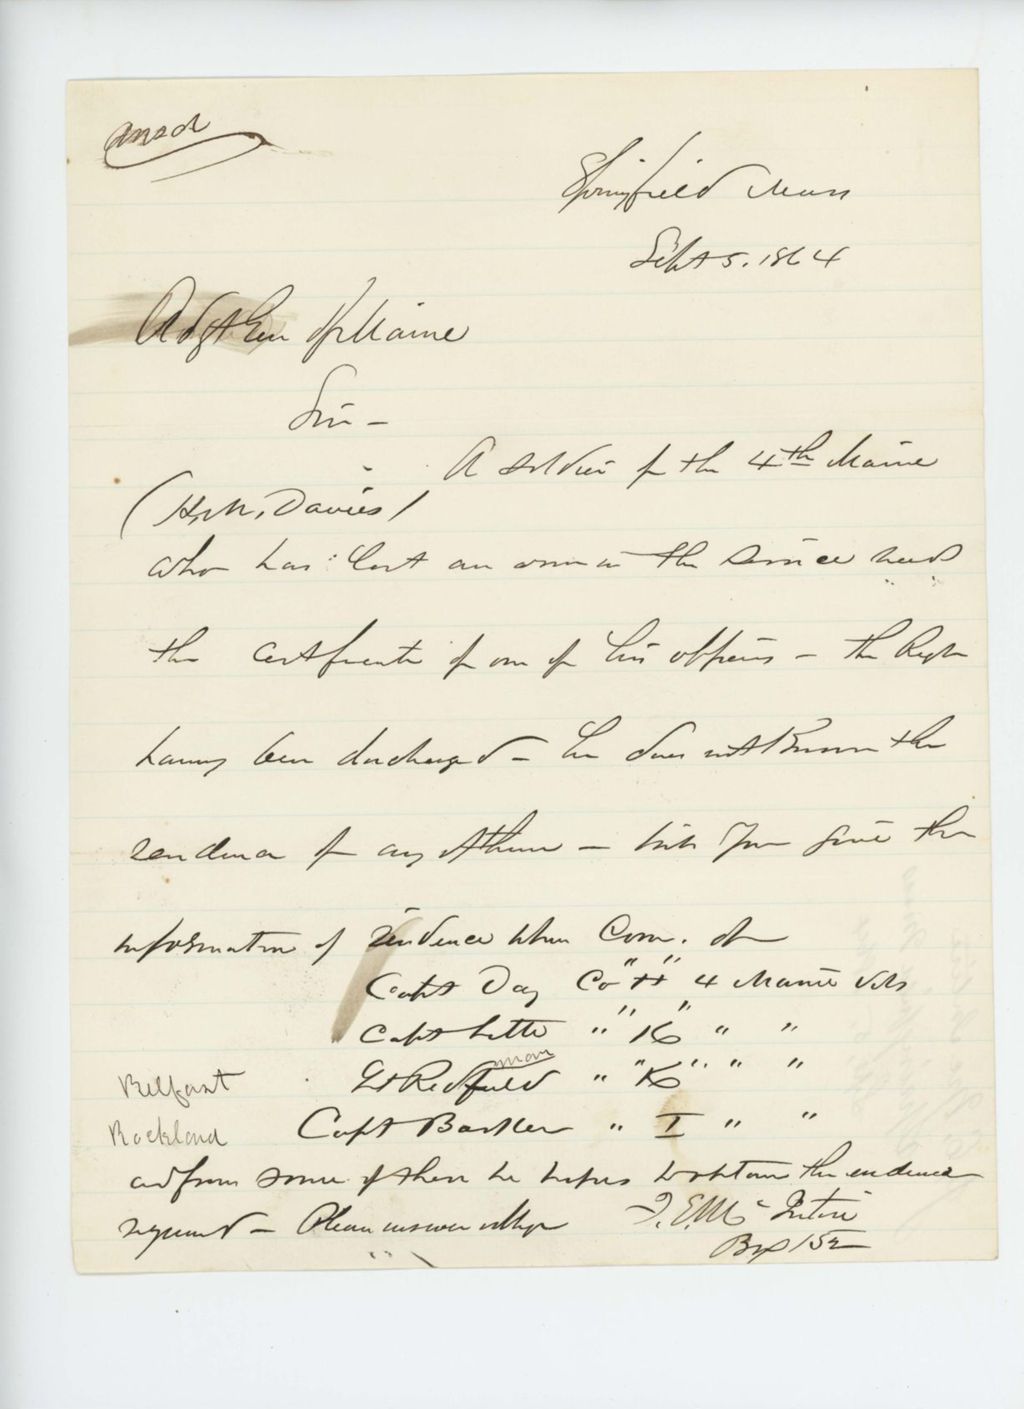 Ansd
Springfield Mass
Sept 5. 1864
Adjt Gen of Maine
Sir -
A soldier of the 4th Maine
(H. M. Davies)
who has lost an arm in the service needs
the certificate of one of his officers - the Regt
having been discharged - he does not Know the
residence of any of them - will you give the
information of residence when Com. of
Capt Day Co "H" 4 Maine Vols
Capt Litt " "K" " "
man
Lt Redfield " "K" " "
Belfast
Rockland Capt Barker " I " "
and from some of them he hopes to obtain the evidence
required - Please answer & oblige F. E. Mc Intire
Box 152